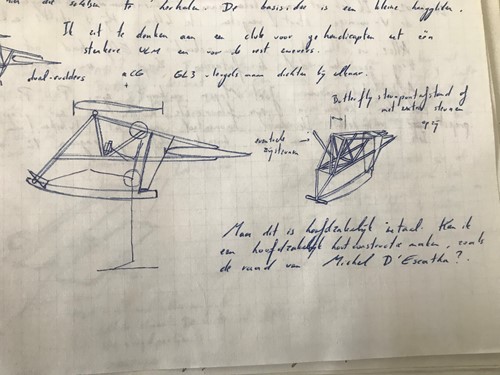 die soliden to herhalen. De basis idee is een kleine hangglider.
Ik zit te denken aan een club voor gehandicapten uit één
en voor de rest
dual-rudders aCG GL3 - vleugels naar dichter bij elkaar.
Butterfly steunpunt afstand of
met extra steunen
opzij
eventuele
zijsteunen
Maar dit is hoofdzakelijk metaal. Kan ik
een hoofdzakelijk houtconstructie maken, zoals
de rand van Michel D'Esentha?